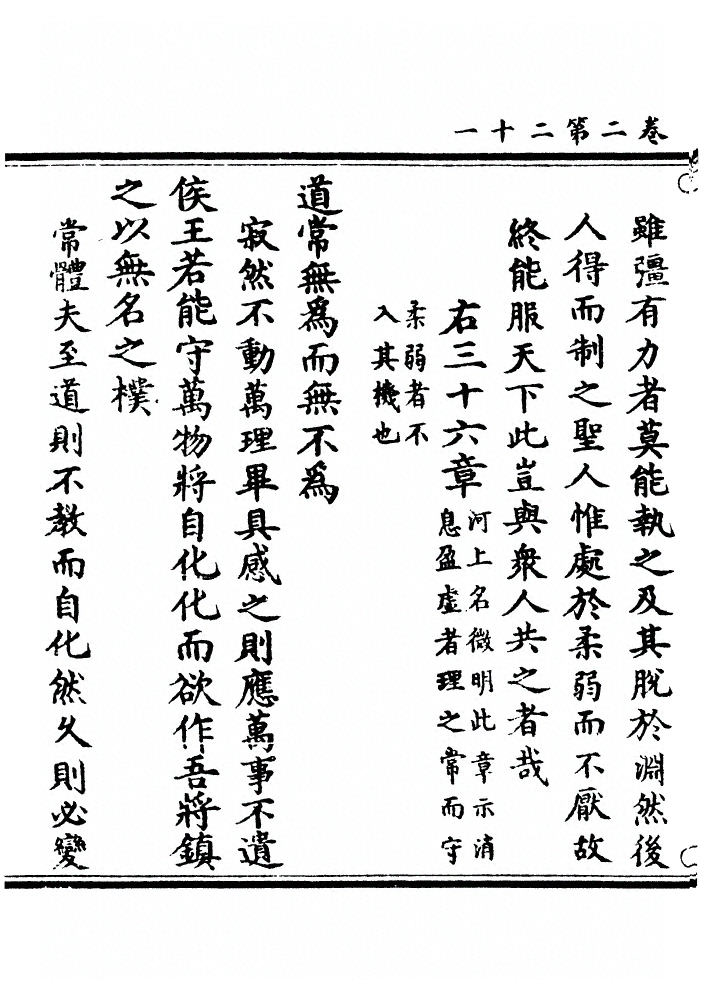 卷二第二十一
雖彊有力者莫能執之及其脫於淵然後
人得而制之聖人惟處於柔弱而不厭故
終能服天下此豈與衆人共之者哉
右三十六章河上名微明此章示消
息盈虛者理之常而守
柔弱者不
入其機也
道常無為而無不為
寂然不動萬理畢具感之則應萬事不遺
侯王若能守萬物將自化化而欲作吾將鎮
之以無名之樸
常體夫至道則不教而自化然久則必變